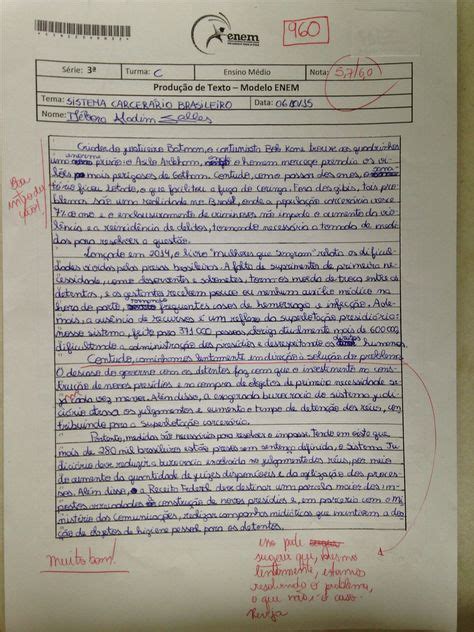 enem
960
Série: 3ª Turma: C Ensino Médio Nota: 5,7/6,0
Produção de Texto – Modelo ENEM
Tema: SISTEMA CARCERÁRIO BRASILEIRO Data: 06/10/15
Nome: Débora Aladim Salles
Criador do justiceiro Batman, o cartunista Bob Kane trouxe aos quadrinhos
uma enorme prisão: o Asilo Arkham, o homem morcego prendia os vi-
lões mais perigosos de Gotham. Contudo, com o passar dos anos, o
ficou lotado, o que facilitou a fuga do Coringa. Fora dos gibis, tais pro-
blemas são uma realidade no Brasil, onde a população carcerária cresce
7% ao ano e o enclausuramento de criminosos não impede o aumento da vio-
lência e a reincidência de delitos, tornando necessária a tomada de medi-
das para resolver a questão.
Lançado em 2014, o livro "Mulheres que sangram" relata as dificul-
dades vividas pelas presas brasileiras. A falta de suprimentos de primeira ne-
cessidade, como absorventes e sabonetes, torna os moeda de troca entre as
detentas, e as gestantes recebem pouco ou nenhum auxílio médico na
hora do parto, tornando frequentes casos de hemorragia e infecção. Ade-
mais, a ausência de recursos é um reflexo da superlotação presidiária:
nosso sistema, feito para 371 000 pessoas, abriga atualmente mais de 600.000,
dificultando a administração dos presídios e desrespeitando os direitos humanos.
Contudo, caminhamos lentamente em direção à solução do problema.
O descaso do governo com os detentos faz com que o investimento na cons-
trução de novos presídios e na compra de objetos de primeira necessidade se-
ja cada vez menor. Além disso, a exagerada burocracia do sistema ju-
diciário atrasa os julgamentos e aumenta o tempo de detenção dos réus, con-
tribuindo para a superlotação carcerária.
Portanto, medidas são necessárias para resolver o impasse. Tendo em vista que
mais de 280 mil brasileiros estão presos sem sentença definida, o Sistema Ju-
diciário deve reduzir a burocracia envolvida no julgamento dos réus, por meio
do aumento da quantidade de juízes disponíveis e da agilização dos proces-
sos. Além disso, a Receita Federal deve destinar uma parcela maior dos im-
postos arrecadados construção de novos presídios e, em parceria com o Mi-
nistério das Comunicações, realizar campanhas midiáticas que incentivem a doa-
ção de objetos de higiene pessoal para os detentos.
Boa
introdução!
Muito bom!
1
isso pode
sugerir que, mesmo
lentamente, estamos
resolvendo o problema,
o que não é o caso.
Reveja